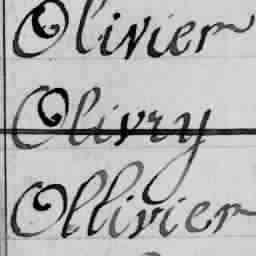 Olivier
Olivry
Ollivier